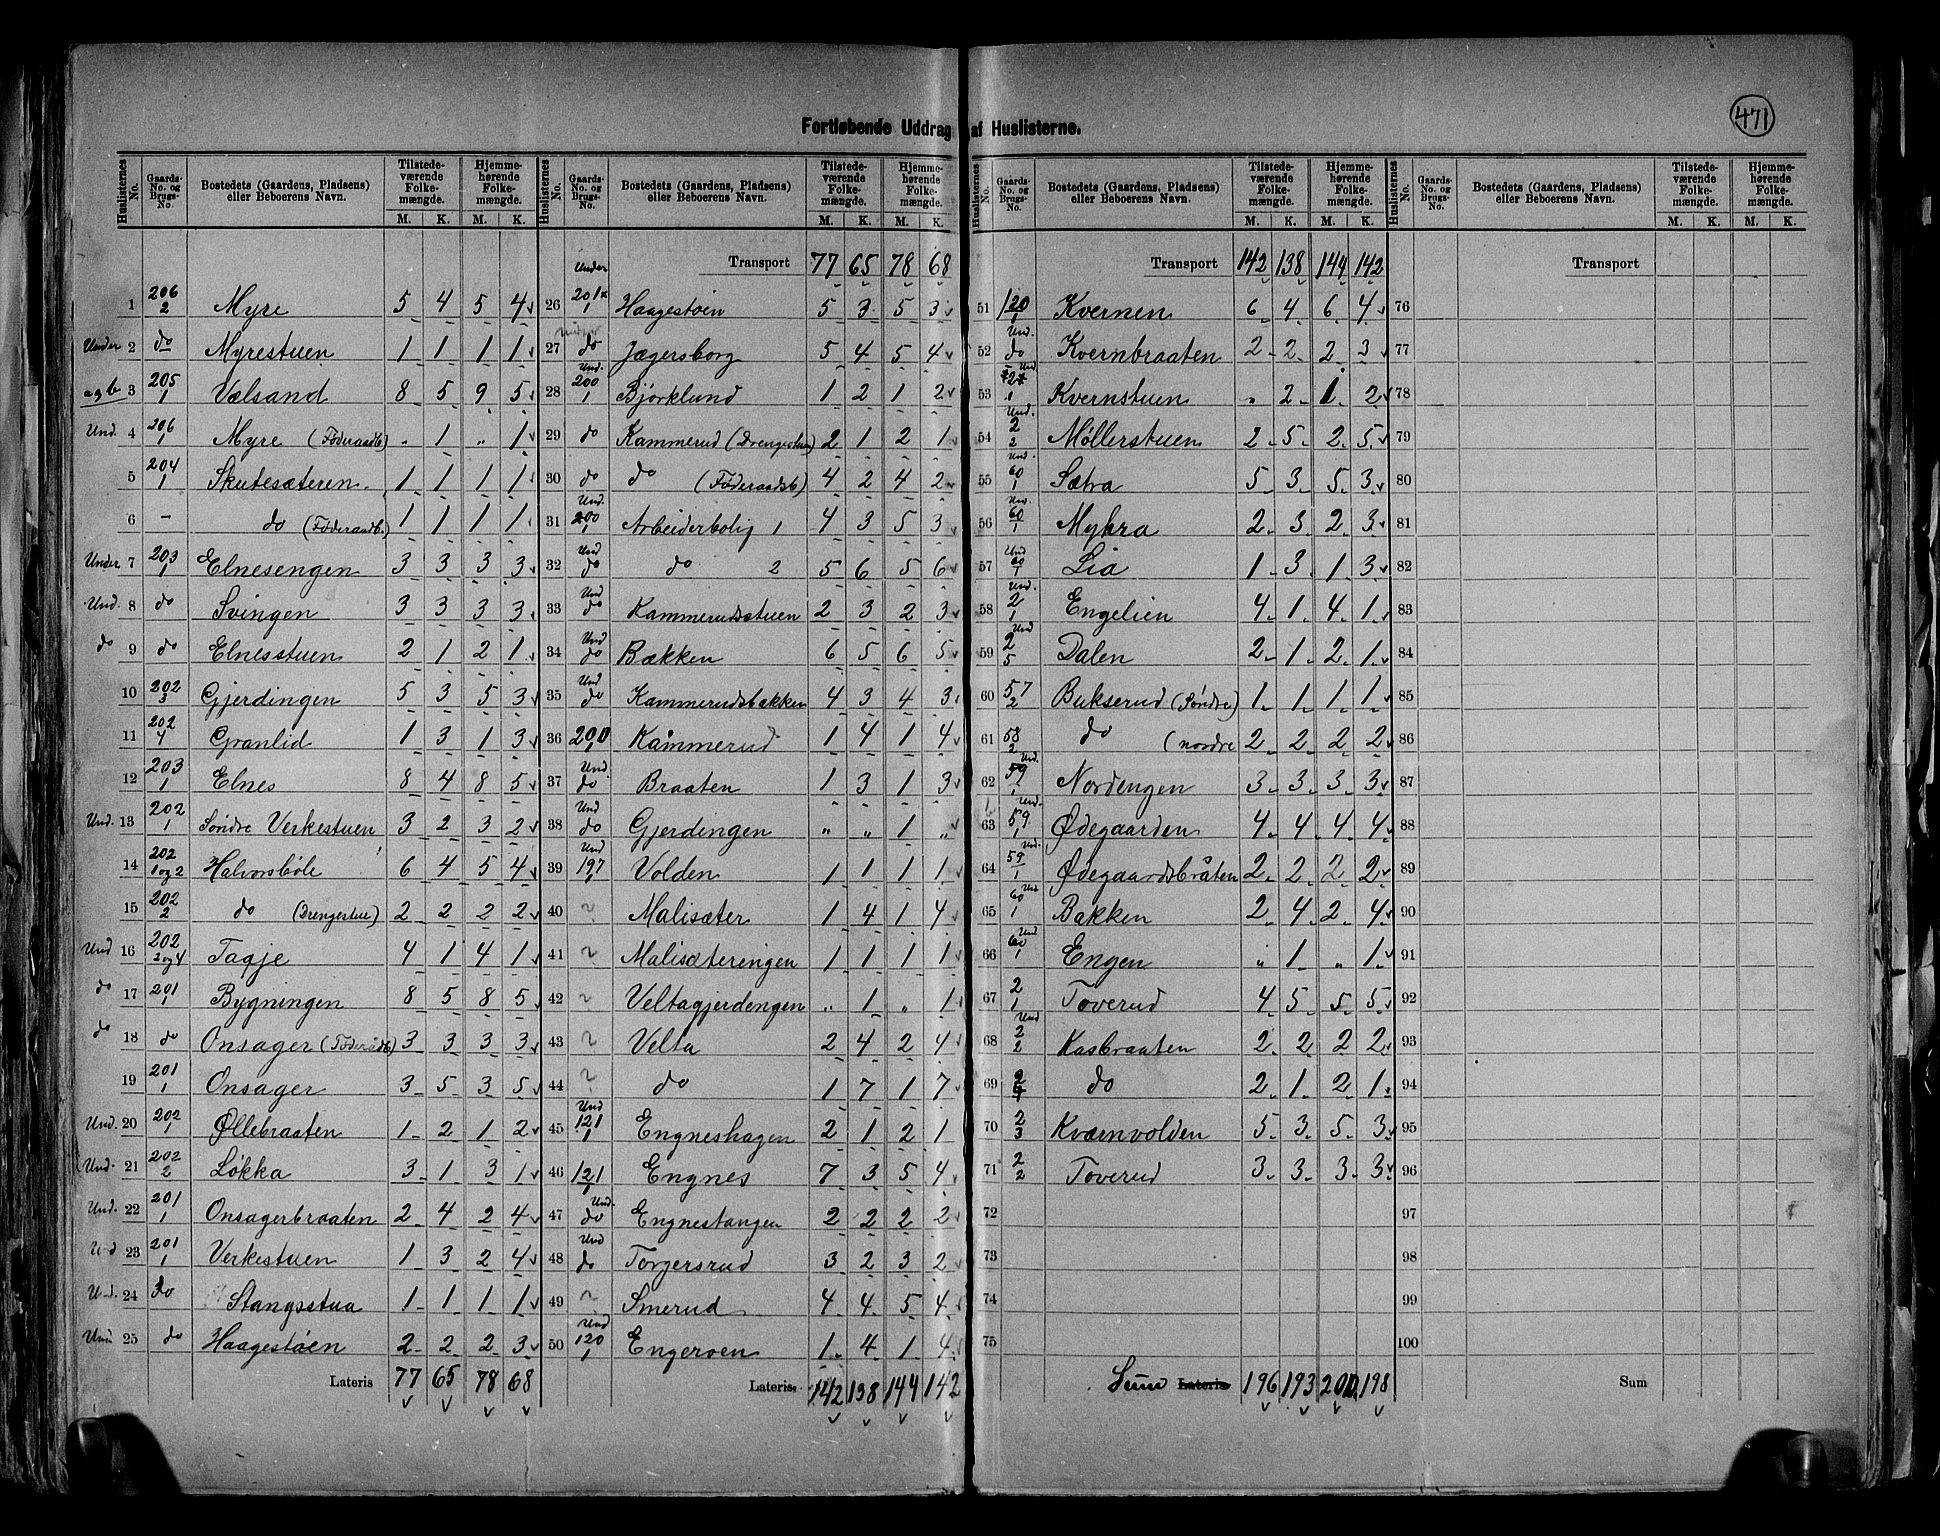 471
Fortløbende Uddrag af Huslisterne.
Huslisternes No. | Gaards-No. og Brugs-No. | Bostedets (Gaardens, Pladsens) eller Beboerens Navn. | Tilstede-værende Folke-mængde. M. K. | Hjemme-hørende Folke-mængde. M. K.
1 206/2 Myre 5 4 5 4
Under 2 do Myrestuen 1 1 1 1
og b 3 205/1 Vælsand 8 5 9 5
Und. 4 206/1 Myre (Føderaadb) " 1 " 1
5 204/1 Skutesæteren 1 1 1 1
6 – do (Føderaadb) 1 1 1 1
Under 7 203/1 Elnesengen 3 3 3 3
Und. 8 do Svingen 3 3 3 3
do 9 do Elnesstuen 2 1 2 1
10 202/3 Gjerdingen 5 3 5 3
11 202/4 Granlid 1 3 1 3
12 203/1 Elnes 8 4 8 5
Und. 13 202/1 Søndre Verkestuen 3 2 3 2
14 202/1 og 2 Halvorsbøle 6 4 5 4
15 202/2 do (Drengestue) 2 2 2 2
Und 16 202/3 og 4 Taaje 4 1 4 1
do 17 201/1 Bygningen 8 5 8 5
do 18 do Onsager (Føderådb) 3 3 3 3
19 201/1 Onsager 3 5 3 5
Und. 20 202/1 Øllebraaten 1 2 1 2
Und. 21 202/2 Løkka 3 1 3 1
Und. 22 201/1 Onsagerbraaten 2 4 2 4
Und 23 201/1 Verkestuen 1 3 2 4
Und. 24 do Stangsstua 1 1 1 1
Und 25 do Haagestøen 2 2 2 3
Lateris 77 65 78 68
Transport 77 65 78 68
26 Under 201/1 Haagestøen 5 3 5 3
27 Under do Jægersborg 5 4 5 4
28 Und. 200/1 Bjørklund 1 2 1 2
29 do Kammerud (Drengestuen) 2 1 2 1
30 do do (Føderaadsb) 4 2 4 2
31 Und. 200/1 Arbeiderbolig 1 4 3 5 3
32 Und do do 2 5 6 5 6
33 Und do Kammerudstuen 2 3 2 3
34 Und do Bækken 6 5 6 5
35 Und do Kammerudsbakken 4 3 4 3
36 200/1 Kammerud 1 4 1 4
37 Und. do Braaten 1 3 1 3
38 Und do Gjerdingen " " 1 "
39 Und 197/1 Volden 1 1 1 1
40 Malisæter 1 4 1 4
41 Malisæteringen 1 1 1 1
42 Veltagjerdengen " 1 " 1
43 Velta 2 4 2 4
44 do 1 7 1 7
45 Und 121/1 Engneshagen 2 1 2 1
46 121/1 Engnes 7 3 5 4
47 Und. do Engnestangen 2 2 2 2
48 Und do Torgersrud 3 2 3 2
49 Smerud 4 4 5 4
50 Und 120/1 Engeroen 1 4 1 4
Lateris. 142 138 144 142
Transport 142 138 144 142
51 120/1 Kvernen 6 4 6 4
52 Und. do Kvernbraaten 2 2 2 3
53 Und Kvernstuen " 2 1 2
54 Und. 2/2 Møllerstuen 2 5 2 5
55 Und. 60/1 Sætra 5 3 5 3
56 Und. 60/1 Mykra 2 3 2 3
57 Und 60/1 Lia 1 3 1 3
58 Und. 2/1 Engelien 4 1 4 1
59 Und 2/5 Dalen 2 1 2 1
60 57/2 Bukserud (Søndre) 1 1 1 1
61 58/2 do (nordre 2 2 2 2
62 Und. 59/1 Nordengen 3 3 3 3
63 Und. 59/1 Ødegaarden 4 4 4 4
64 Und. 59/1 Ødegaardsbråten 2 2 2 2
65 Und 60/1 Bakken 2 4 2 4
66 Und 60/1 Engen " 1 " 1
67 2/1 Toverud 4 5 5 5
68 Und 2/2 Kasbraaten 2 2 2 2
69 do 2 1 2 1
70 2/3 Kværnvolden 5 3 5 3
71 2/2 Toverud 3 3 3 3
72
73
74
75
Sum Lateris 196 193 200 198
Transport
76
77
78
79
80
81
82
83
84
85
86
87
88
89
90
91
92
93
94
95
96
97
98
99
100
Sum